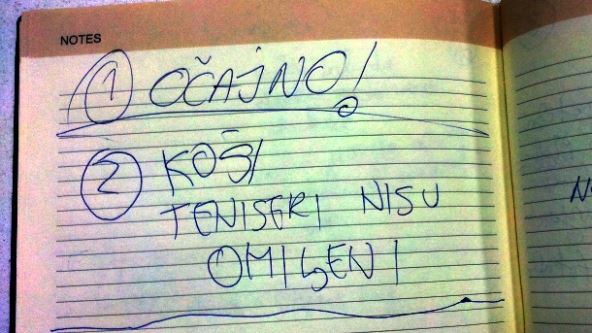 NOTES
1 OČAJNO!
2 KOŠ/
TENISERI NISU
OMILJENI
N